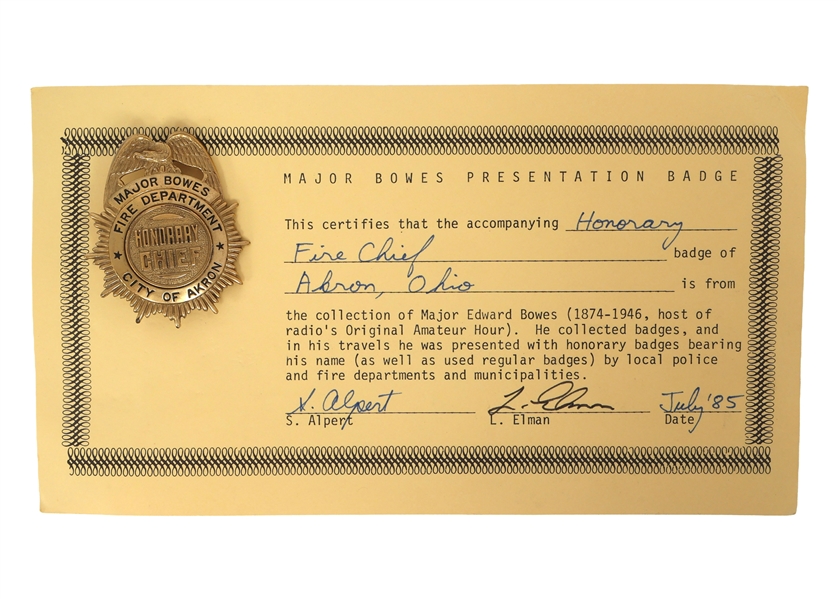 MAJOR BOWES
FIRE DEPARTMENT
HONORARY
CHIEF
CITY OF AKRON
MAJOR BOWES PRESENTATION BADGE
This certifies that the accompanying Honorary
Fire Chief badge of
Akron, Ohio is from
the collection of Major Edward Bowes (1874-1946, host of
radio's Original Amateur Hour). He collected badges, and
in his travels he was presented with honorary badges bearing
his name (as well as used regular badges) by local police
and fire departments and municipalities.
S. Alpert L. Elman July '85
S. Alpert L. Elman Date